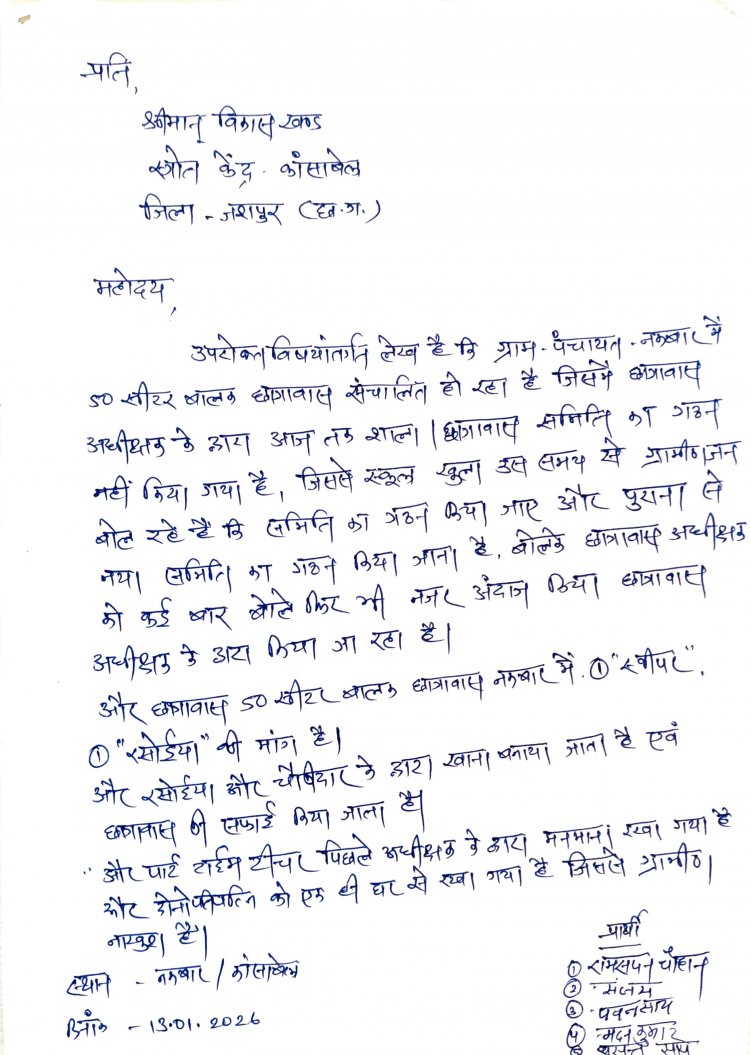 प्रति,
श्रीमान् विकास खण्ड
स्त्रोत केंद्र - कांसाबेल
जिला - जशपुर (छ.ग.)
महोदय,
उपरोक्त विषयांतर्गत लेख है कि ग्राम - पंचायत - नकबार में
50 सीटर बालक छात्रावास संचालित हो रहा है जिसमें छात्रावास
अधीक्षक के द्वारा आज तक शाला / छात्रावास समिति का गठन
नहीं किया गया है, जिससे स्कूल खुला उस समय से ग्रामीण जन
बोल रहे हैं कि समिति का गठन किया जाए और पुराना से
नया समिति का गठन किया जाना है, बोलके छात्रावास अधीक्षक
को कई बार बोले फिर भी नजर अंदाज किया छात्रावास
अधीक्षक के द्वारा किया जा रहा है।
और छात्रावास 50 सीटर बालक छात्रावास नकबार में ① "स्वीपर",
① "रसोईया" की मांग है।
और रसोईया और चौकीदार के द्वारा खाना बनाया जाता है एवं
छात्रावास की सफाई किया जाता है।
और पार्ट टाईम टीचर पिछले अधीक्षक के द्वारा मनमाना रखा गया है
और दोनों पतिपत्नि को एक ही घर से रखा गया है जिससे ग्रामीण
नाखुश है।
स्थान - नकबार / कांसाबेल
दिनांक - 13.01.2026
प्रार्थी
① रामसपन चौहान
② संजय
③ पवनसाय
④ मदन कुमार